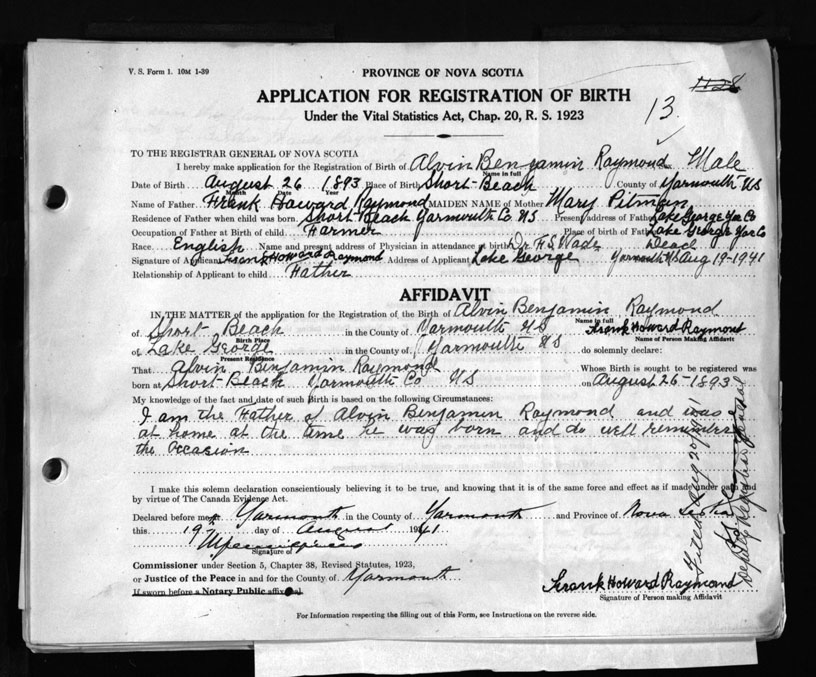 V. S. Form 1. 10M 1-39
PROVINCE OF NOVA SCOTIA
APPLICATION FOR REGISTRATION OF BIRTH
Under the Vital Statistics Act, Chap. 20, R. S. 1923
13
TO THE REGISTRAR GENERAL OF NOVA SCOTIA
I hereby make application for the Registration of Birth of Alvin Benjamin Raymond Male
Name in full
Date of Birth August 26 1893 Place of Birth Short-Beach County of Yarmouth NS
Month Date Year
Name of Father Frank Howard Raymond MAIDEN NAME of Mother Mary Pitman
Residence of Father when child was born Short Beach Yarmouth Co NS Present address of Father Lake George Yar Co
Occupation of Father at Birth of child Farmer Place of birth of Father Lake George Yar Co
Race English Name and present address of Physician in attendance at birth Dr F.S. Wade Dead
Signature of Applicant Frank Howard Raymond Address of Applicant Lake George Yarmouth NS Aug 19-1941
Relationship of Applicant to child Father
AFFIDAVIT
IN THE MATTER of the application for the Registration of the Birth of Alvin Benjamin Raymond
Name in full
of Short Beach in the County of Yarmouth NS Frank Howard Raymond
Birth Place Name of Person Making Affidavit
of Lake George in the County of Yarmouth NS do solemnly declare:
Present Residence
That Alvin Benjamin Raymond Whose Birth is sought to be registered was
born at Short-Beach Yarmouth Co NS on August 26-1893
My knowledge of the fact and date of such Birth is based on the following Circumstances:
I am the Father of Alvin Benjamin Raymond and was
at home at the time he was born and do well remember
the Occasion
I make this solemn declaration conscientiously believing it to be true, and knowing that it is of the same force and effect as if made under oath and
by virtue of The Canada Evidence Act.
Declared before me at Yarmouth in the County of Yarmouth and Province of Nova Scotia
this 19th day of August 1941
Signature of
Commissioner under Section 5, Chapter 38, Revised Statutes, 1923,
or Justice of the Peace in and for the County of Yarmouth
If sworn before a Notary Public affix seal.
Frank Howard Raymond
Signature of Person making Affidavit
For Information respecting the filling out of this Form, see Instructions on the reverse side.
Filed Aug 20/1941
Deputy Registrar General